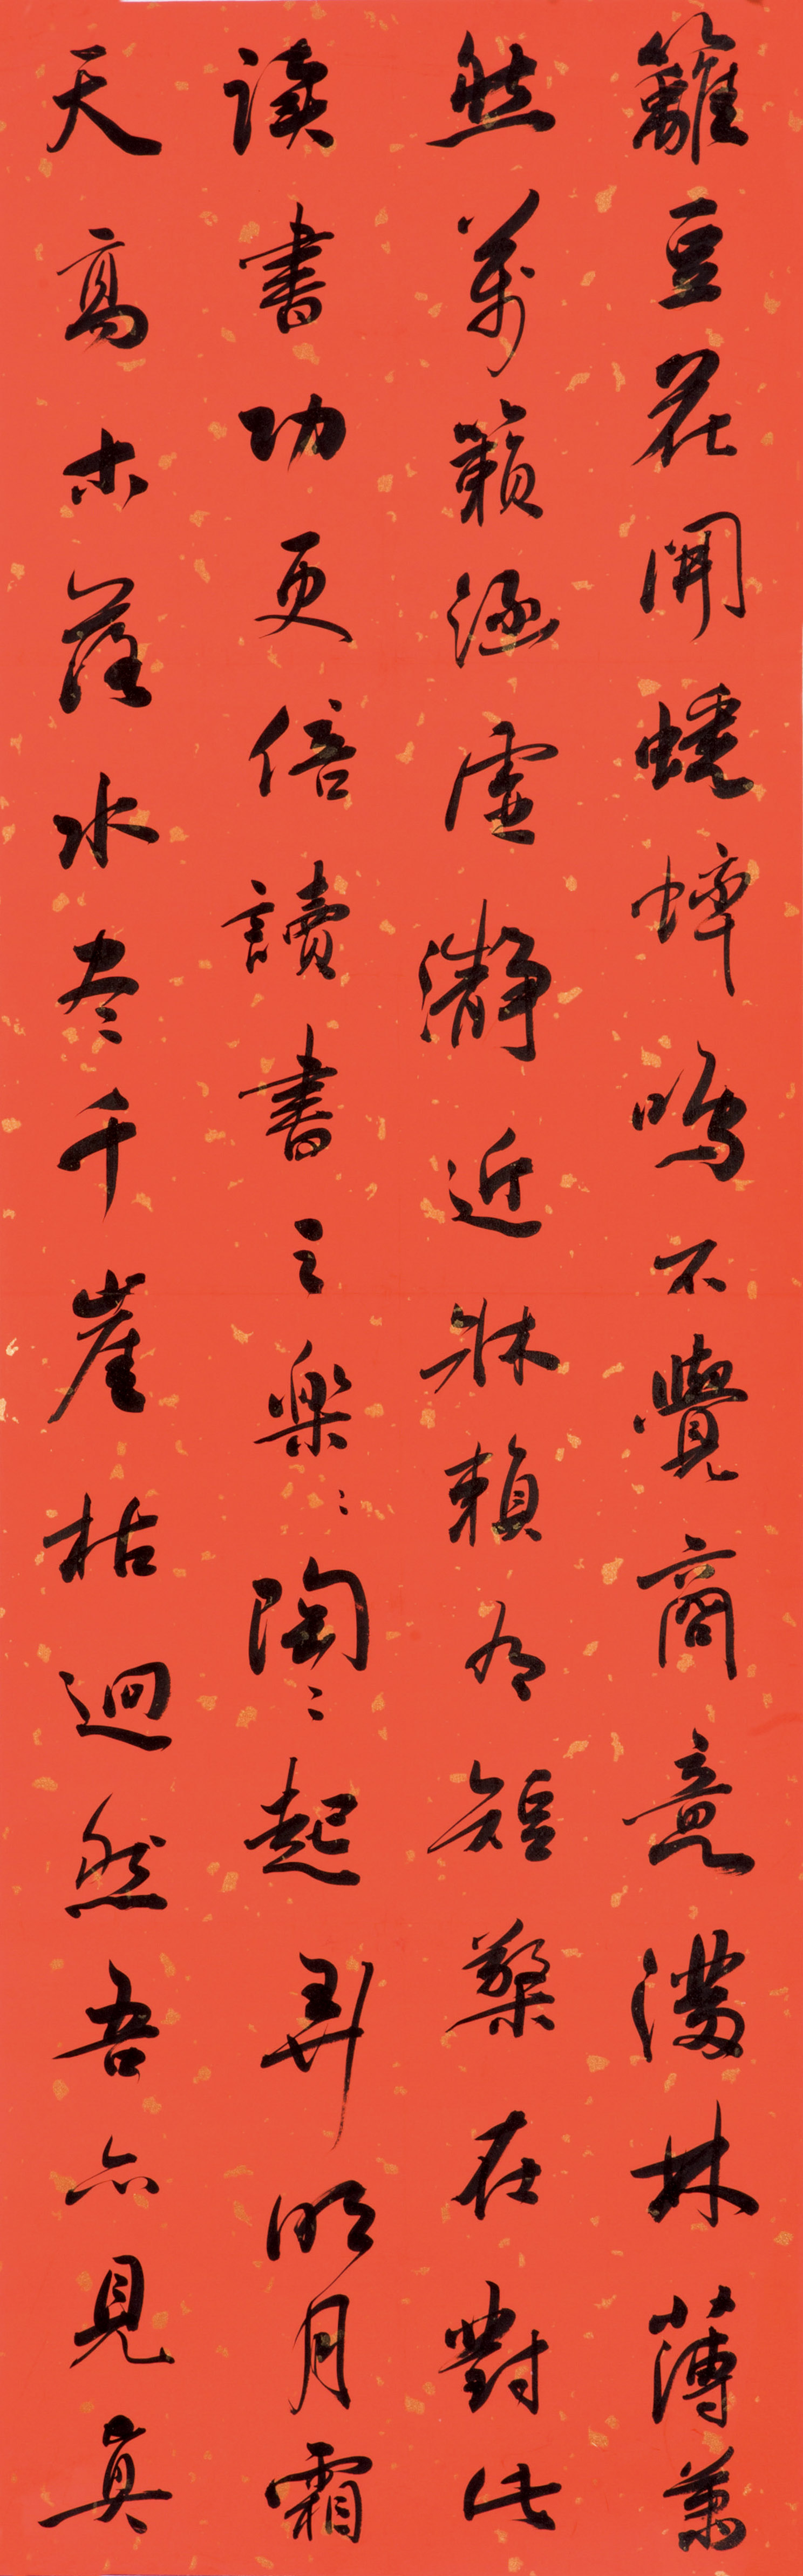 籬豆花開蟋蟀鳴不覺商意滿林薄蕭
然萬籟涵虛瀞近牀賴有短檠在對此
读書功更倍讀書之楽〻陶〻起弄明月霜
天高木落水尽千崖枯迥然吾亦見真